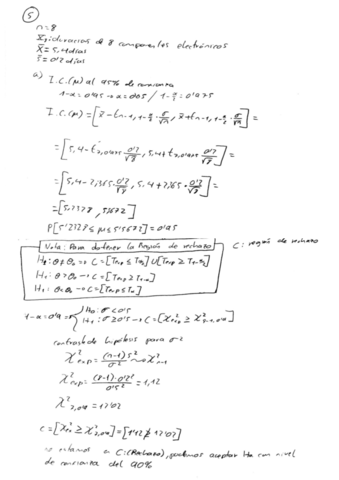 5
n=8
X: duracion de 8 componentes electrónicos
x̄ = 5,4 días
s = 0'2 días
a) I.C.(μ) al 95% de confianza
1-α = 0'95 → α = 0'05 / 1-α/2 = 0'975
I.C.(μ) = [x̄ - t n-1, 1-α/2 · σ/√n, x̄ + t n-1, 1-α/2 · σ/√n] =
= [5,4 - t 7,0'975 · 0'2/√8, 5,4 + t 7,0'975 · 0'2/√8] =
= [5,4 - 2,365 · 0'2/√8, 5,4 + 2,365 · 0'2/√8] =
= [5,2328, 5,5672]
P[5'2328 ≤ μ ≤ 5'5672] = 0'95
Nota: Para obtener la Región de rechazo
C: región de rechazo
H1: θ≠θ0 → C = [Texp ≤ Tα/2] U [Texp ≥ T1-α/2]
H1: θ>θ0 → C = [Texp ≥ T1-α]
H1: θ<θ0 → C = [Texp ≤ Tα]
1-α = 0'9 → H0: σ < 0'5
H1: σ ≥ 0'5 → C = [χ²exp ≥ χ² n-1, 0'9]
contraste de hipótesis para σ²
χ²exp = (n-1)s²/σ² ~ χ² n-1
χ²exp = (8-1)·0'2²/0'5² = 1,12
χ² 7,0'9 = 12'02
C = [χ²exp ≥ χ² 7,0'9] = [1'12 ≱ 12'02]
no estamos a C:(Rechazo), podemos aceptar H0 con nivel
de confianza del 90%